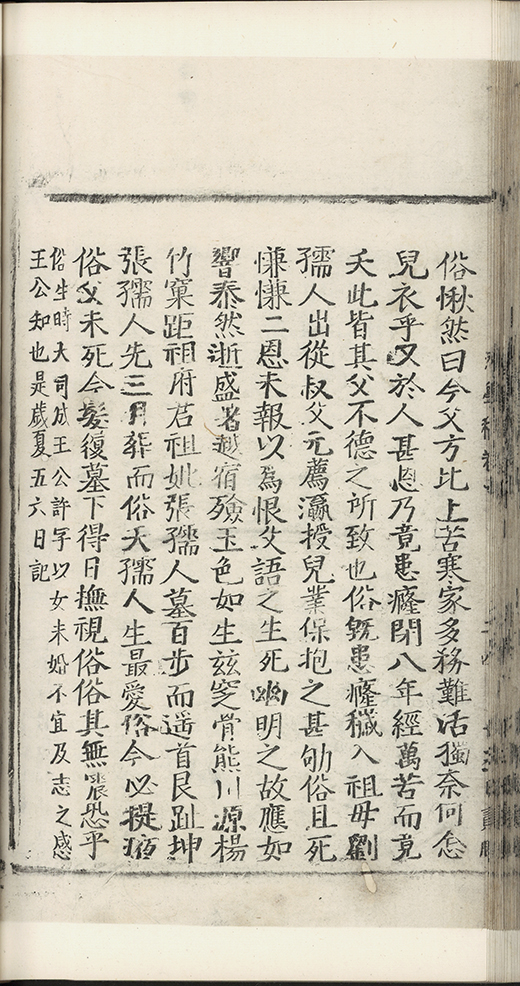 俗愀然曰今父方比上苦寒家多務難活獨奈何怎
兒衣乎又於人甚恩乃竟患癃閉八年經萬苦而竟
夭此皆其父不德之所致也俗旣患癃穢入祖毋劉
孺人出從叔父元薦灜授兒業保抱之甚劬俗且死
慊慊二恩未報以爲恨父語之生死幽明之故應如
響泰然逝盛暑越宿殮玉色如生玆窆骨熊川源楊
竹窠距祖府君祖妣張孺人墓百步而遥首艮趾坤
張孺人先三月葬而俗夭孺人生最愛俗今必提
俗父未死今髮復墓下得日撫視俗俗其無恐乎
俗生時大司成王公許字以女未婚不宜及志之感
王公知也是歲夏五六日記